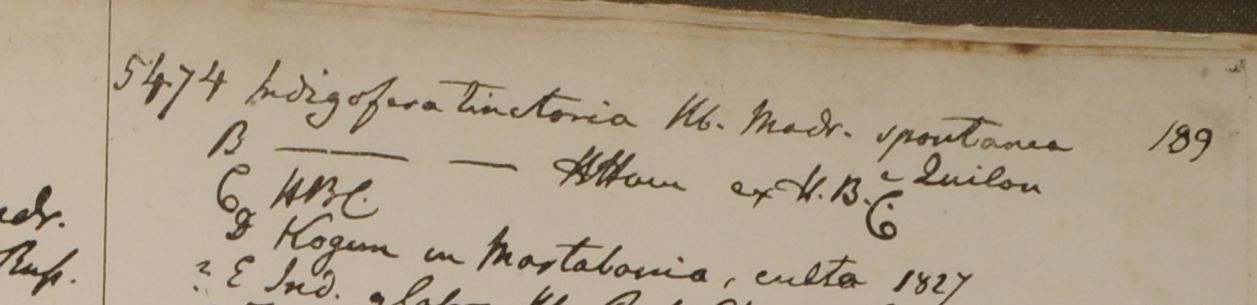 189
5474 Indigofera tinctoria Hb. Madr. spontanea
B ——— —— HHam ex H.B.C. e Quilon
C HBC.
D Kogun in Martabania, culta 1827
? E Ind.
adr.